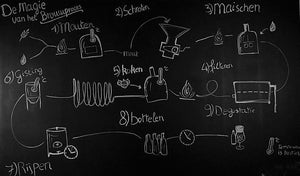 De Magie
van het Brouwproces
1) Mouten
2) Schroten
3) Maischen
mout
4) filtreren
5) koken
6) Gisting
7) Rijpen
8) Bottelen
9) Degustatie